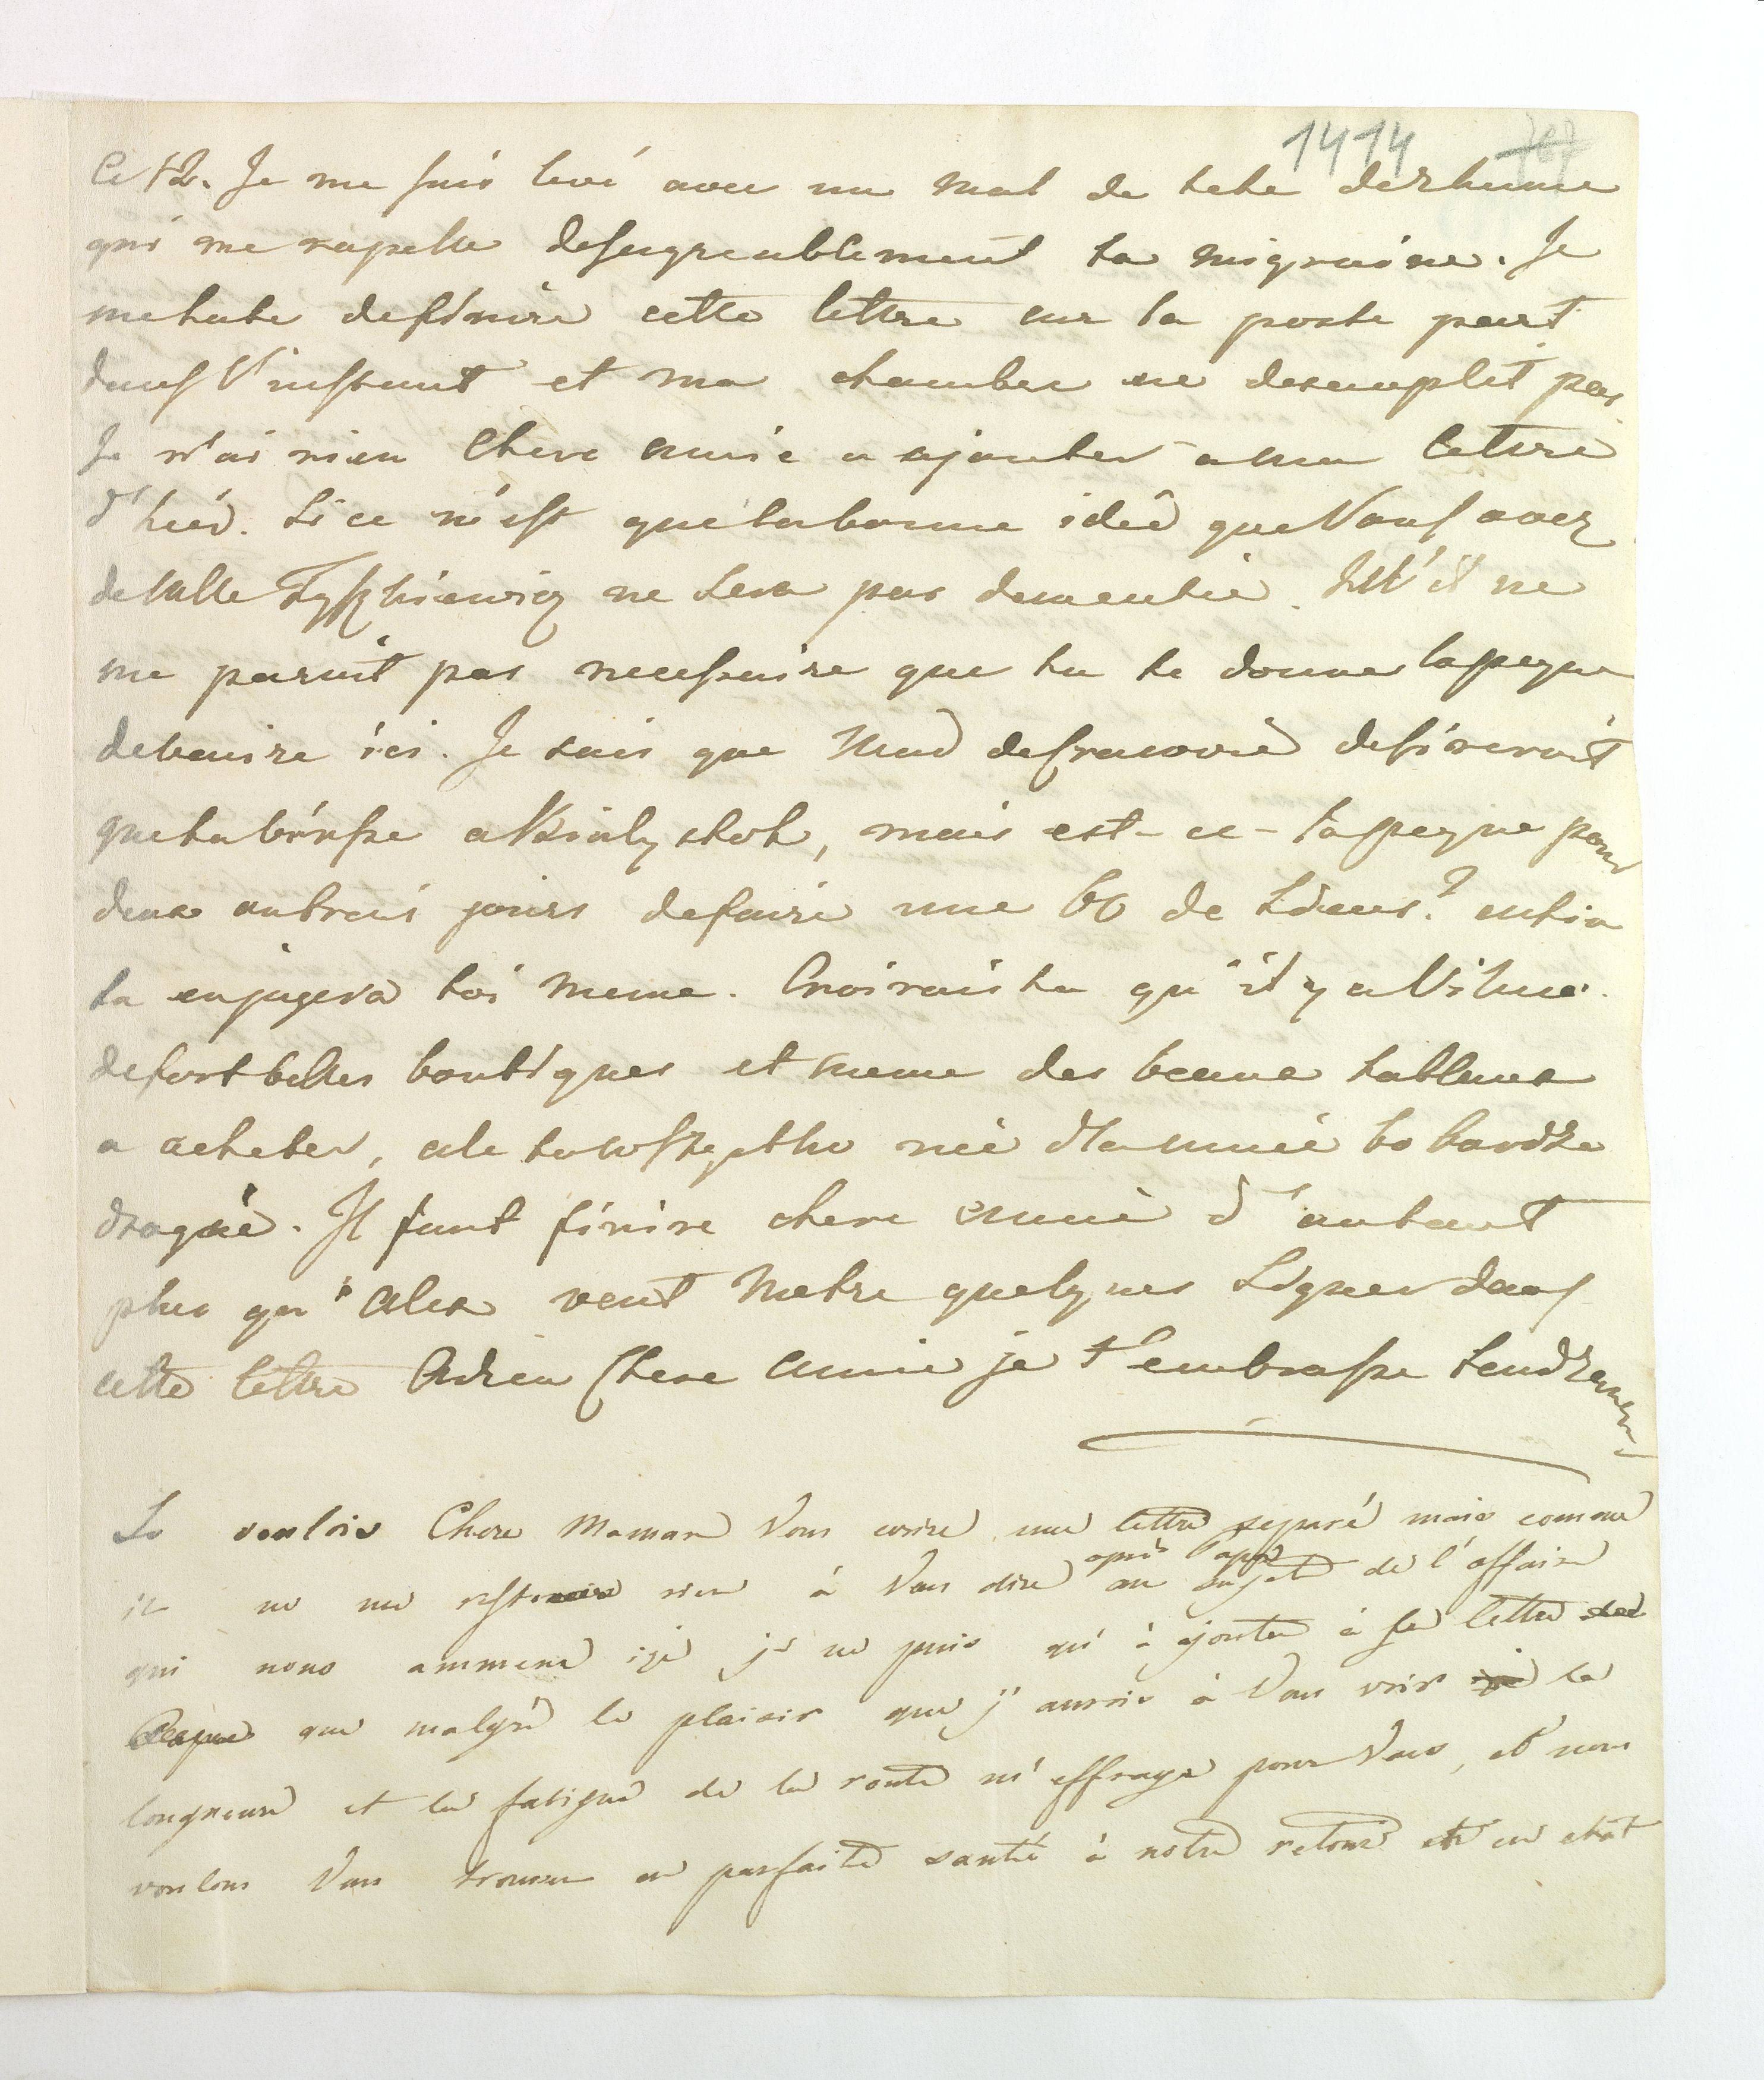 1414 767
Ce 12. Je me suis levé avec un mal de tete de rhume
qui me rapelle desagreablement ta migraine. Je
me hate de finire cette lettre car la poste part
dans l'instant et ma chambre ne desemplit pas.
Je n'ai rien Chere amie a ajouter a ma lettre
d'hier. Si ce n'est que la bonne idée que Vous avez
de Mlle Tyszkiewicz ne sera pas dementie. il ne
me parait pas necessaire que tu te donne la peyne
de venire ici. Je sais que Mad desireroit
que tu vinsse a Bialystok, mais est-ce-la peyne pour
deux ou trois jours de faire une 60 de Lieus? enfin
tu en jugera toi meme. Croirais tu qu'il y a Vilna
de fort belles boutiques et meme des beaux tableaux
a acheter, ale to wszystko nie dla mnie bo bardzo
drogie. Il faut finire chere amie d'autant
plus qu'Alex veut metre quelques Lignes dans
cette lettre Adieu Chere Amie je t'embrasse tendremen
Je voulois Chere Maman Vous ecrire une lettre separé mais comme
il ne me rien à Vous dire au sujet de l'affaire
après
qui nous ammene içi je ne puis qu'à ajouter à sa lettre
que malgré le plaisir que j'aurois à Vous voir la
longueure et la fatigue de la route m'effraye pour Vous, et nous
voulons Vous trouver en parfaite santé à notre retour et en etat